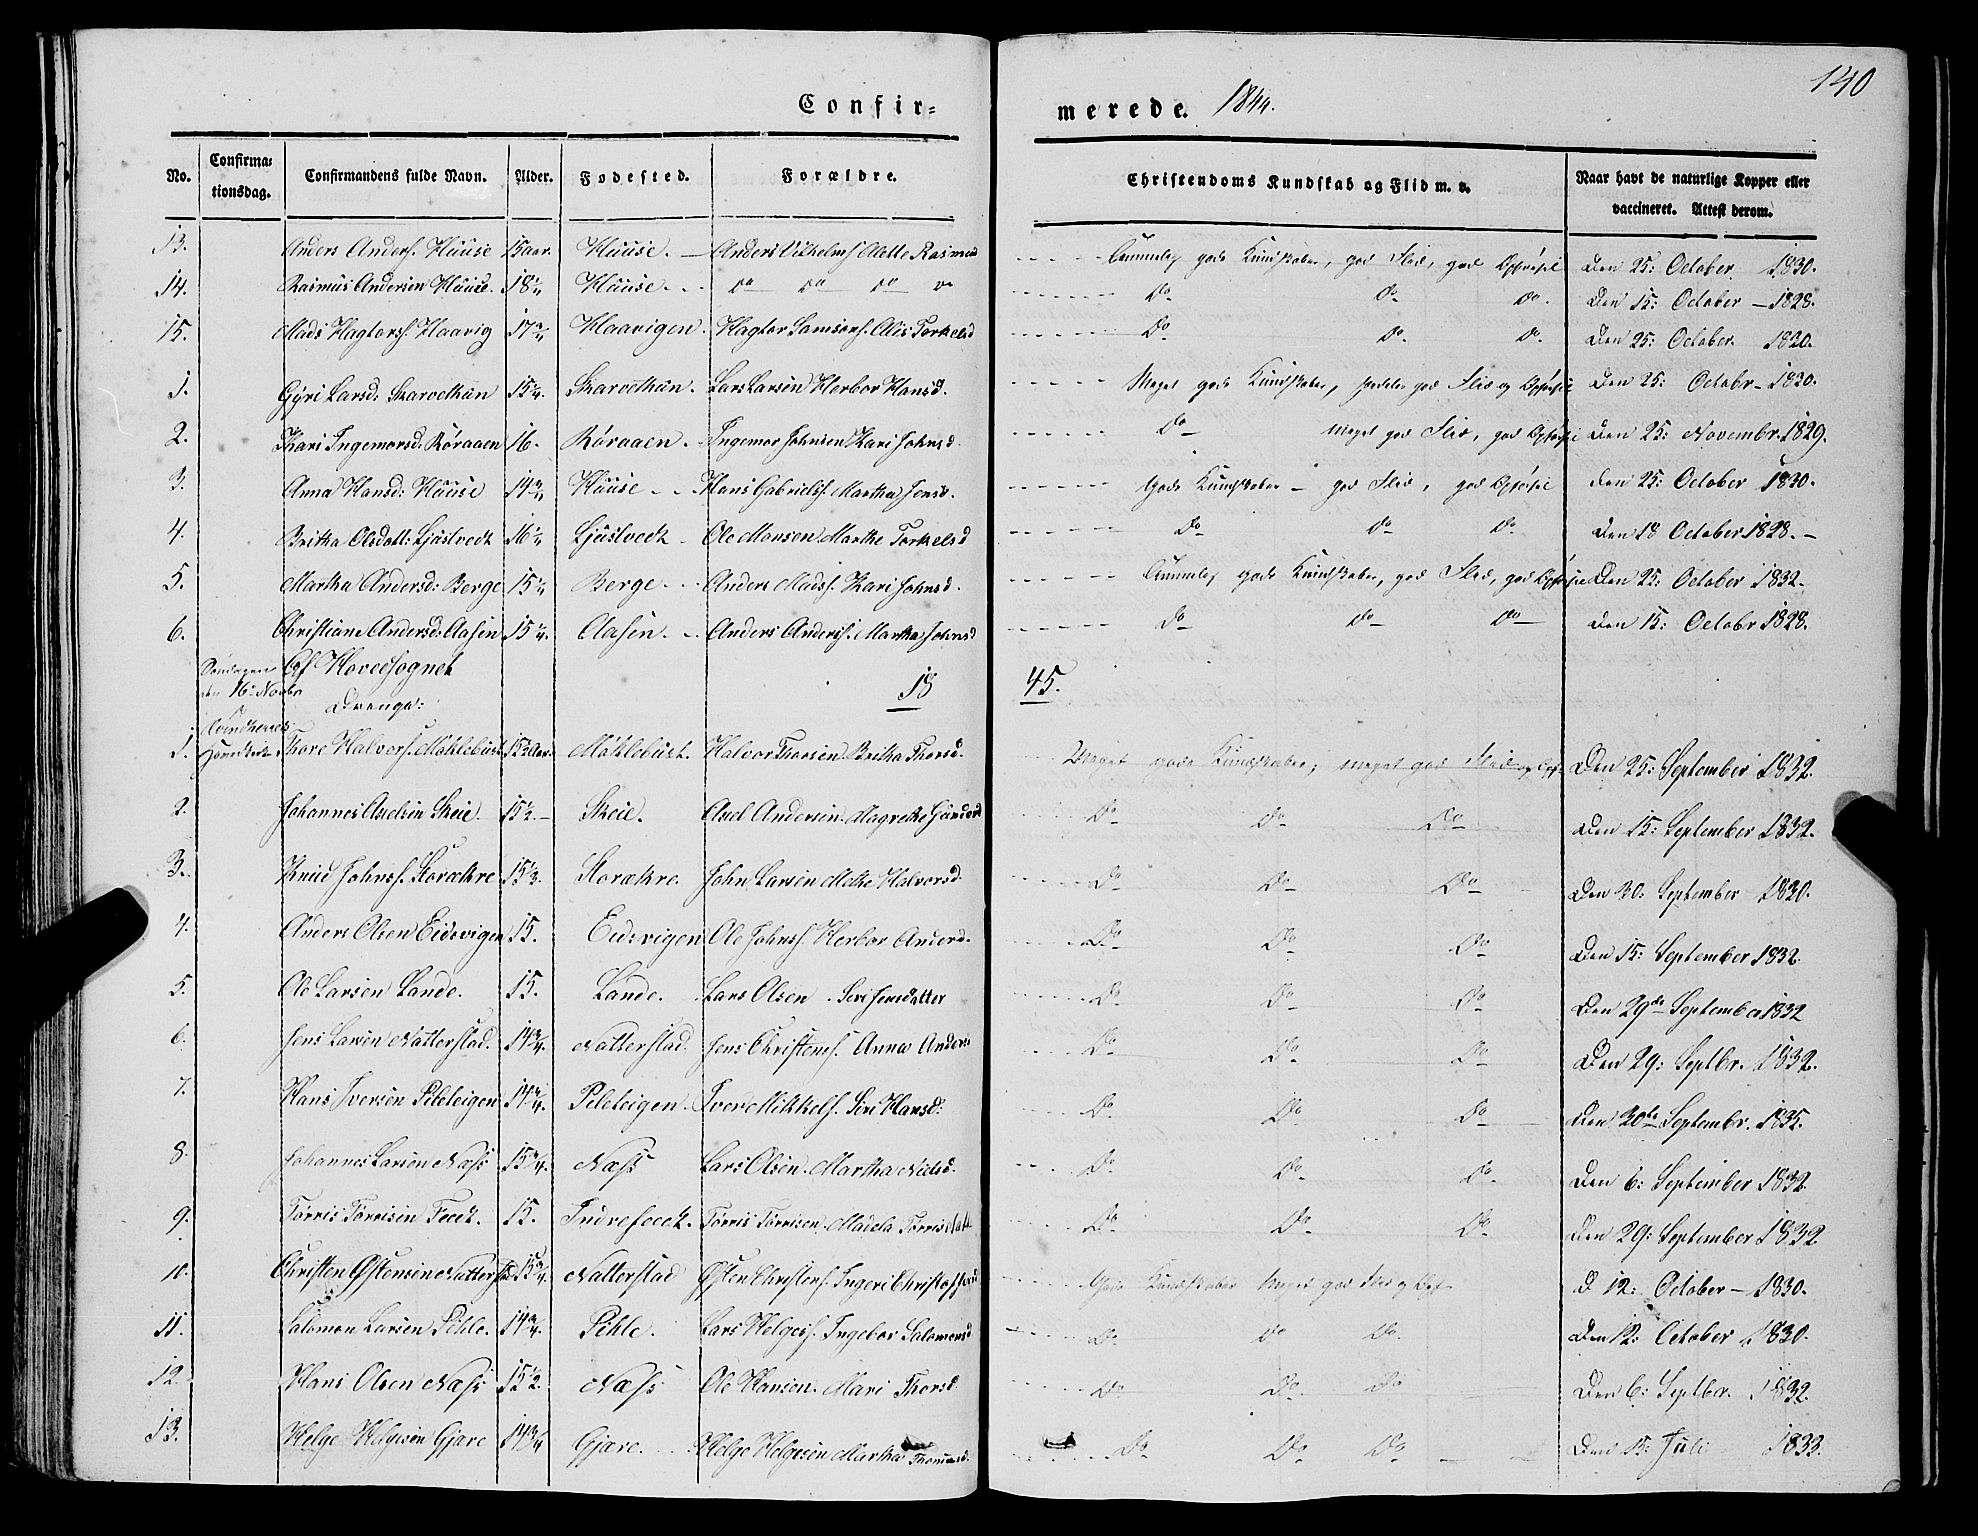 140
Confir=
merede. 1844.
No. Confirma-tionsdag. Confirmandens fulde Navn. Alder. Fødested. Forældre. Christendoms Kundskab og Flid m. v. Naar havt de naturlige Kopper eller vaccineret. Attest derom.
13. Anders Anders. Huuse 15 aar. Huuse. Anders Vilhelms Mette Rasmusd gode Kundskaber, god Flid, god Opførsel Den 25: October 1830.
14. Rasmus Andersen Huuse. 18 Huuse do do do do Do do do. Den 15: October 1828.
15. Mads Hagtors. Haavig 17 Haavigen. Hagtor Samsons. Torkelsd Do do. do. Den 25: October 1830.
1. Gyri Larsd. Skarvethun 15 Skarvethun. Lars Larsen Herbor Hansd. Meget gode Kundskaber, god Flid og Opførsel Den 25: Octobr 1830.
2. Kari Ingemorsd: Røraaen 16. Røraaen Ingemor Johnsen Kari Johnsd. Do meget god Flid, god Opførsel Den 25: Novembr. 1829.
3. Anna Hansd: Huuse 14 3/4 Huuse Hans Gabriels. Martha Jensd. Gode Kundskaber god Flid, god Opførsel Den 25: October 1830.
4. Britha Olsdatt: Ljustvedt 16 Ljustvedt Ole Monsen Marthe Torkelsd Do Do Do Den 18 October 1828.
5. Martha Andersd: Berge 15 Berge Anders Mads. Kari Johnsd. gode Kundskaber, god Flid, god Opførsel Den 25: October 1832.
6. Christiane Andersd: Aasen 15 Aasen. Anders Anders. Martha Johnsd Do Do Do Den 15: Octobr 1828.
Søndagen den 16 Af Hovedsognet
Drenge: 18 45.
1. Thore Halvors. Møklebust 15 Aar. Møklebust. Halvor Thorsen. Britha Thorsd. Meget gode Kundskaber, meget god Flid og Opf. Den 25: September 1832.
2. Johannes Axelsen Skeie. 15 Skeie. Axel Andersen. Magrethe Do Do Do Den 15: September 1832.
3. Knud Johns. Storækre 15 Storækre. John Larsen Halvorsd. Do Do Do Den 30: September 1830.
4. Anders Olsen Eidsvigen 15. Eidsvigen Ole Johns. Herbor Andersd. Do Do Do Den 15: September 1832.
5. Ole Larsen Lande. 15. Lande. Lars Olsen. Siri Jensdatter Do Do Do Den 29de September 1832
6. Jens Larsen Natterstad. 14 3/4. Natterstad. Jens Christens. Anna Anders Do Do Do Den 29: Septbr. 1832.
7. Hans Iversen Peleteigen 14 3/4. Peleteigen. Iver Mikkels. Siri Hansd: Do Do Do Den 30te Septembr. 1835.
8. Johannes Larsen Næss 15 Næss Lars Olsen. Martha Nielsd. Do Do Do Den 6: September 1832
9. Tørris Tørrisen Feedt. 15. Indrefeedt. Tørris Tørrisen. Madela Tørrisdatt Do Do Do Den 29: September 1832
10. Christen Østensen Natterstad 15 Natterstad Østen Christens. Ingeri Gode Kundskaber Meget god Flid og Opf. D 12: October 1830.
11. Salomon Larsen Pihle. 14 3/4. Pihle. Lars Helges. Ingebor Salomonsd Do Do Do. Den 12: October 1830.
12. Hans Olsen Næss 15 1/2. Næss Ole Hansen. Mari Thorsd. Do Do. Do Den 6: Septbr. 1832
13. Helge Helgesen Gjære 14 3/4 Gjære. Helge Helgesen Martha Thomasd. Do Do Do Den 15: Juli 1833.